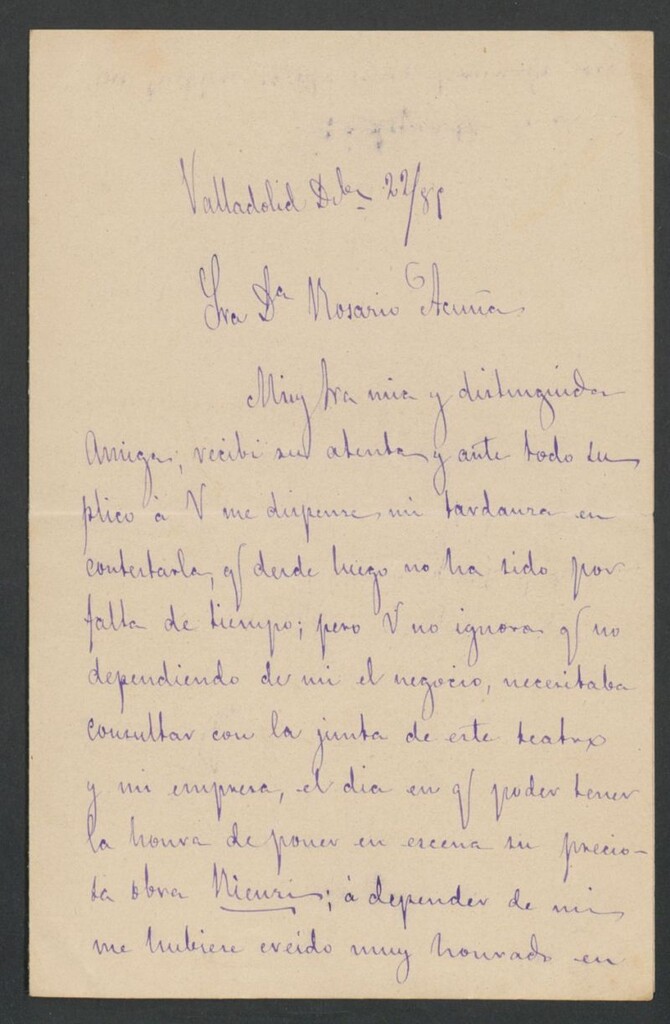 Valladolid Dbre 22/81
Sra Da Rosario Acuña
Muy Sra mia y distinguida
Amiga; recibi su atenta y ante todo su
plico á V me dispense mi tardanza en
contestarla, q desde luego no ha sido por
falta de tiempo; pero V no ignora q no
dependiendo de mi el negocio, necesitaba
consultar con la junta de este teatro
y mi empresa, el dia en q poder tener
la honra de poner en escena su precio-
sa obra Rienzi; á depender de mi
me hubiese creido muy honrado en